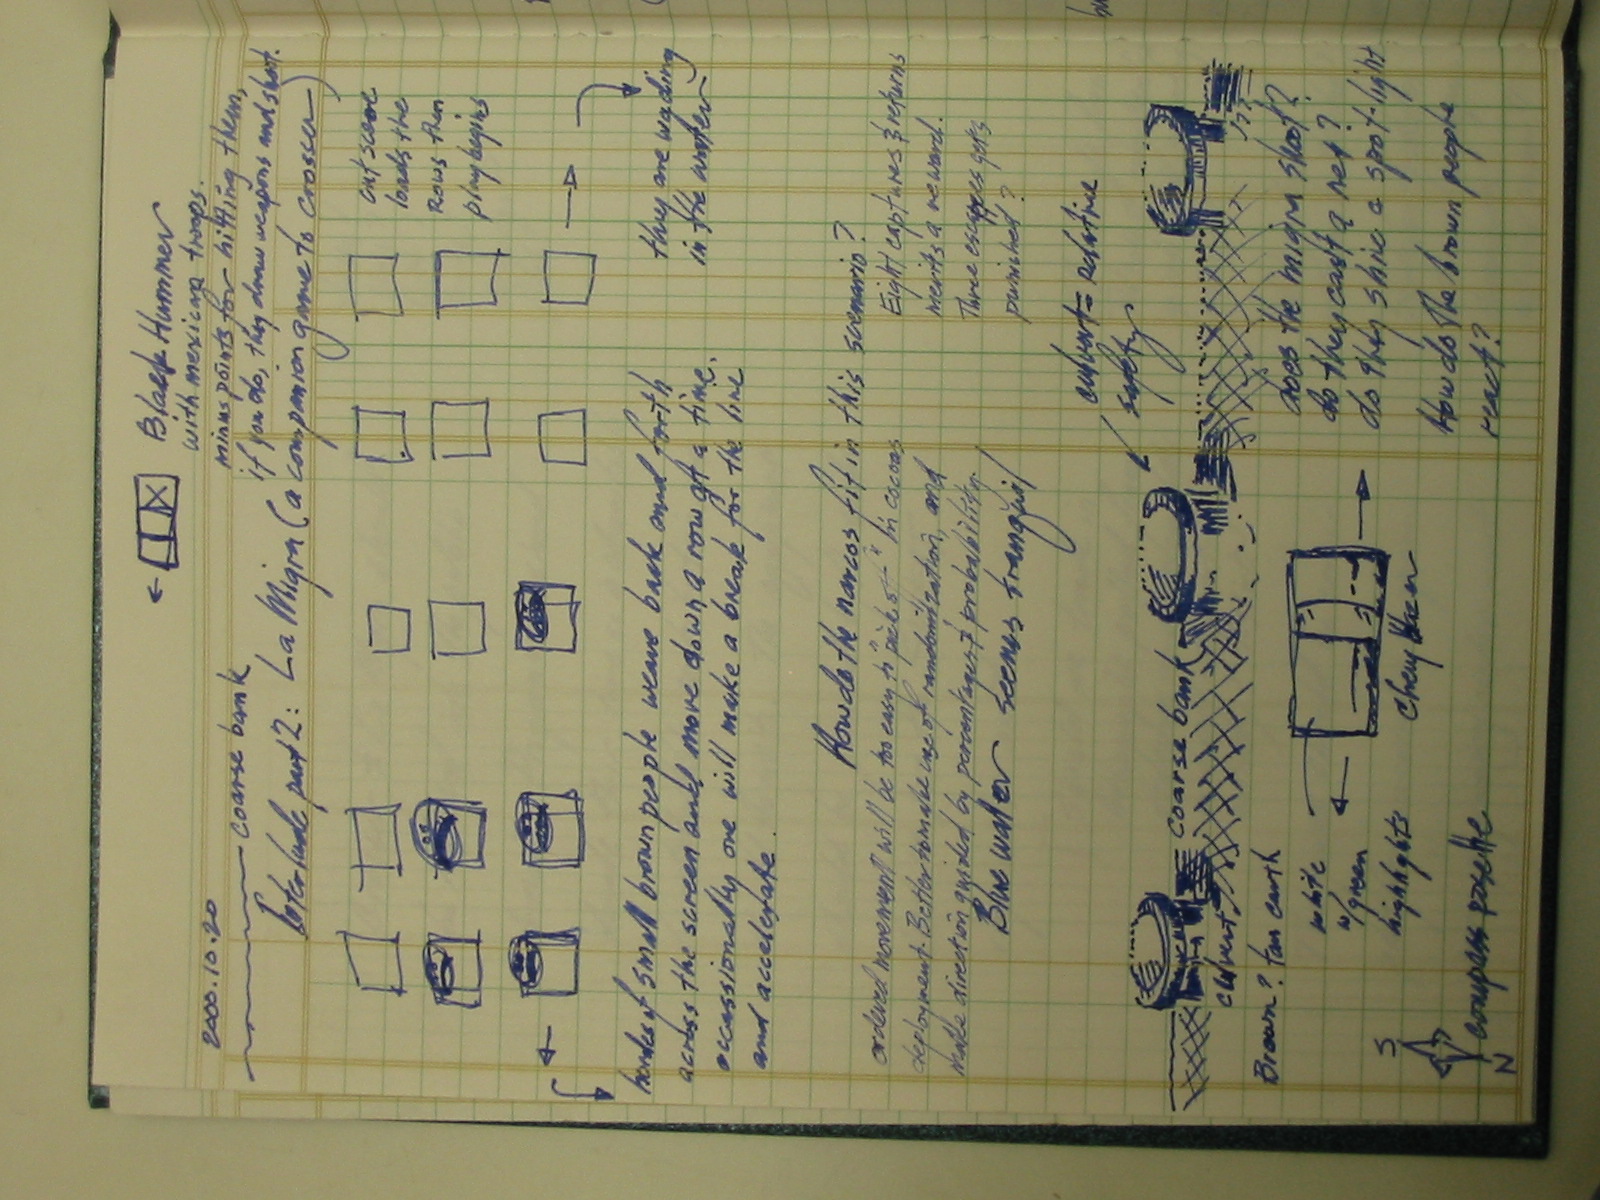 2000.10.20
Black Hummer
with mexican troops.
minus points for hitting them,
if you do, they draw weapons and shoot.
coarse bank
Interlude part 2: La Migra (a companion game to Crosser)
cut scene
loads the
Rows then
play begins
hordes of small brown people weave back and forth
across the screen and move down a row at a time.
occassionally one will make a break for the line
and accelerate
they are wading
in the water
How do the narcos fit in this scenario?
ordered movement will be too easy to "pick off" in cocoas
deployment. Better to make use of randomization, and
make direction guided by percentages & probability.
Blue water seems tranquil
Eight captures & returns
merits a reward.
Three escapes gets
punished?
culvert = relative
safety
coarse bank
culvert
Brown? tan earth
white
w/green
highlights
Chevy Blazer
does the migra shoot?
do they cast a net?
do they shine a spot-light
How do the brown people
react?
S
N
compass rosette